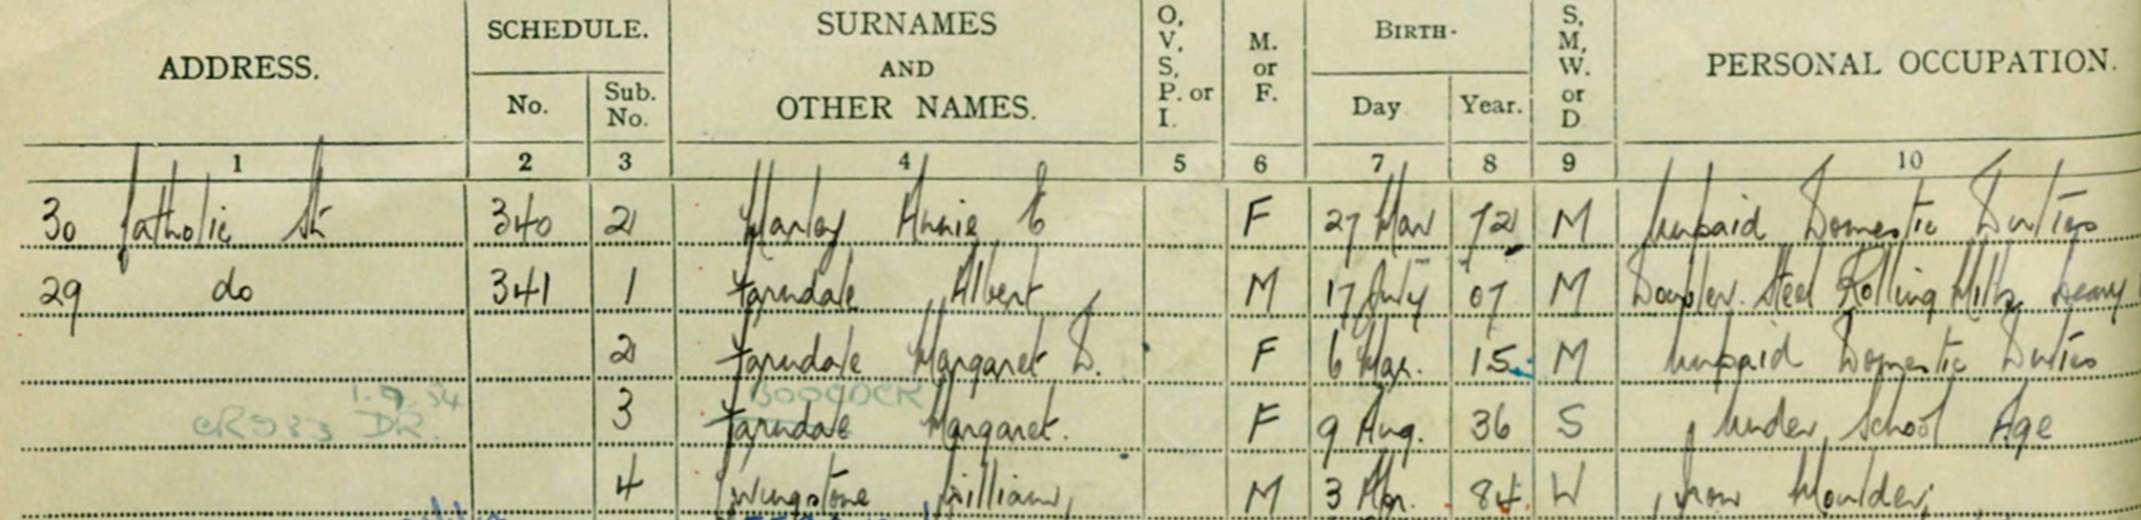 ADDRESS. SCHEDULE. SURNAMES AND OTHER NAMES. O, V, S, P. or I. M. or F. BIRTH- S, M, W. or D PERSONAL OCCUPATION.
No. Sub. No. Day Year.
1 2 3 4 5 6 7 8 9 10
30 Catholic St 340 2 Manley Annie E F 27 Mar 72 M Unpaid Domestic Duties
29 do 341 1 Farndale Albert M 17 July 07 M Steel Rolling Mills Heavy
2 Farndale Margaret D. F 6 Mar. 15 M Unpaid Domestic Duties
1.9.54 BOOCOCK
CR983 DR. 3 Farndale Margaret. F 9 Aug. 36 S Under School Age
4 William M 3 84 W Iron Moulder